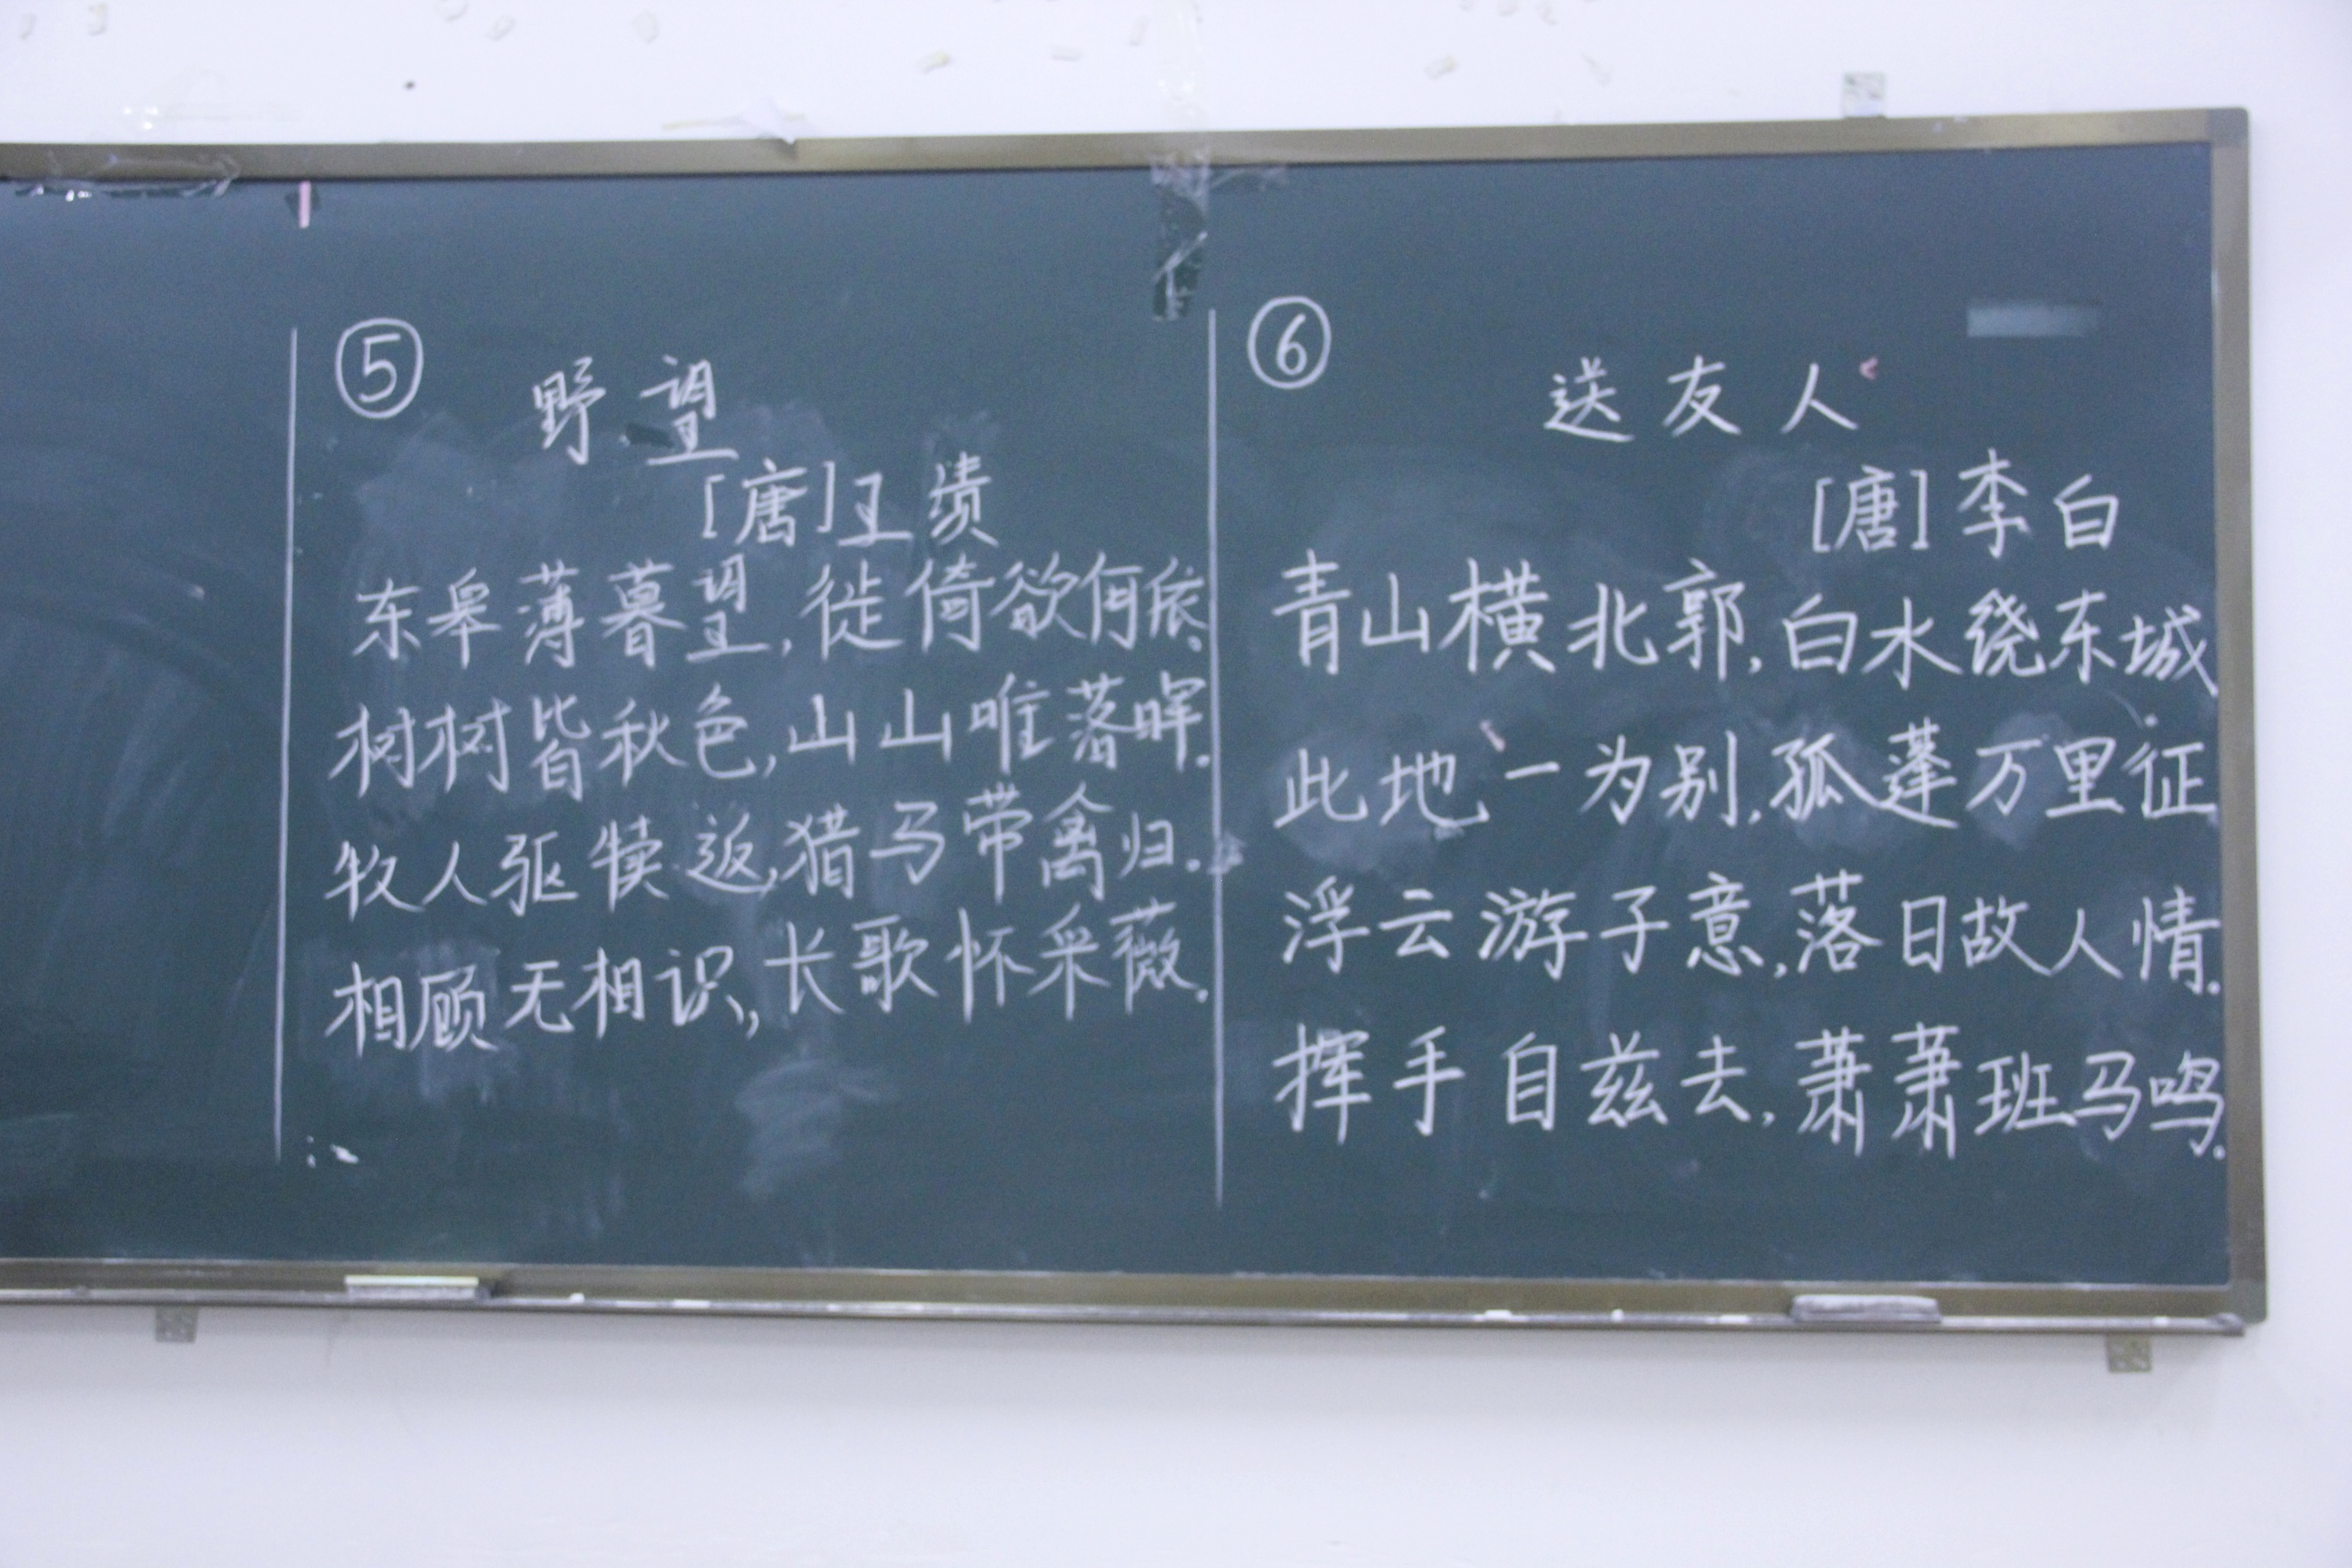 ⑤
野望
[唐]王绩
东皋薄暮望,徙倚欲何依.
树树皆秋色,山山唯落晖.
牧人驱犊返,猎马带禽归.
相顾无相识,长歌怀采薇.
⑥
送友人
[唐]李白
青山横北郭,白水绕东城.
此地一为别,孤蓬万里征
浮云游子意,落日故人情.
挥手自兹去,萧萧班马鸣.